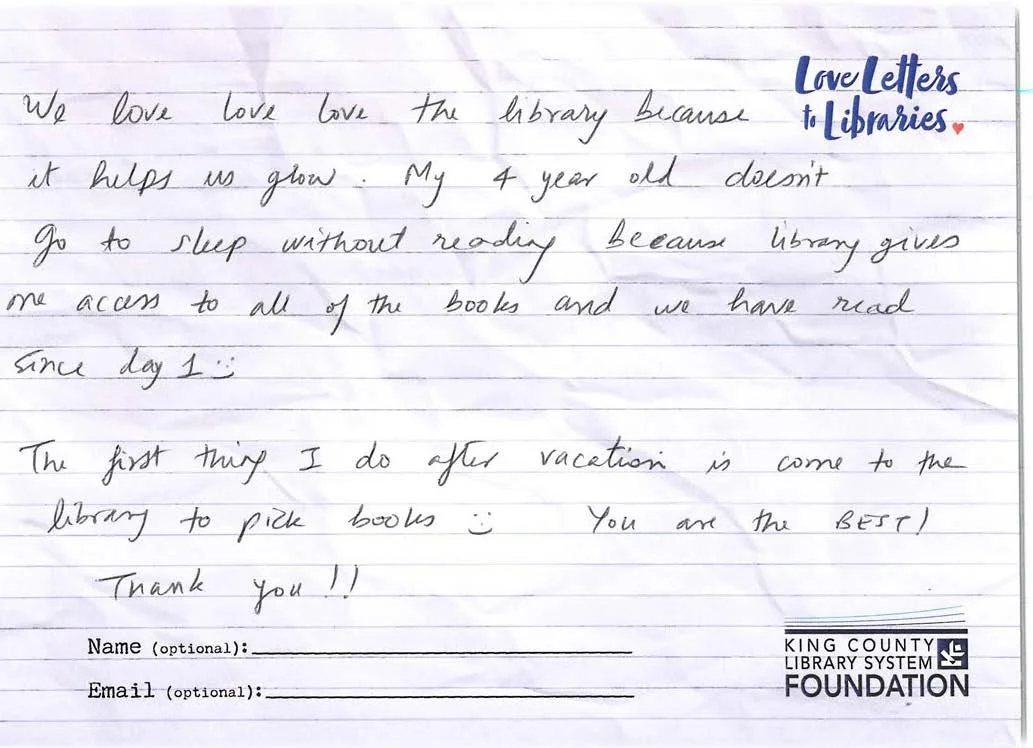 Love Letters
to Libraries
We love love love the library because
it helps us grow. My 4 year old doesn't
go to sleep without reading because library gives
me access to all of the books and we have read
since day 1 :)
The first thing I do after vacation is come to the
library to pick books :) You are the BEST!
Thank you!!
Name (optional):
Email (optional):
KING COUNTY
LIBRARY SYSTEM
FOUNDATION